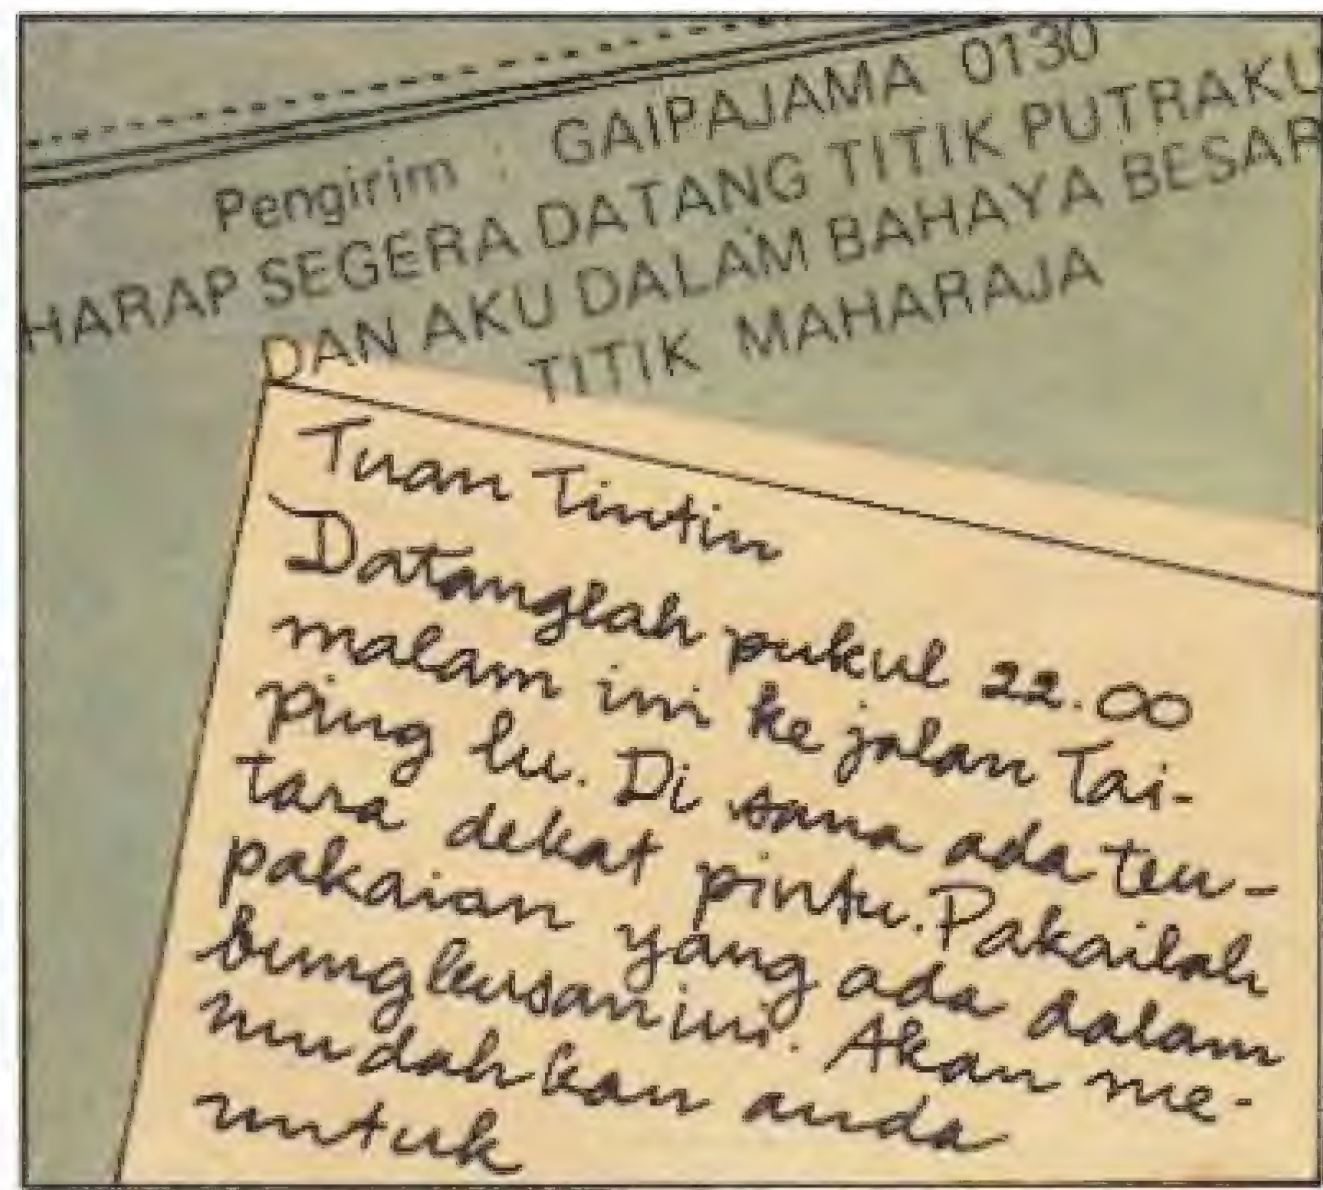 Pengirim : GAIPAJAMA 0130
HARAP SEGERA DATANG TITIK PUTRAKU
DAN AKU DALAM BAHAYA BESAR
TITIK MAHARAJA
Tuan Tintin
Datanglah pukul 22.00
malam ini ke jalan Tai-
ping lu. Di sana ada ten-
tara dekat pintu. Pakailah
pakaian yang ada dalam
bungkusan ini. Akan me-
mudahkan anda
untuk